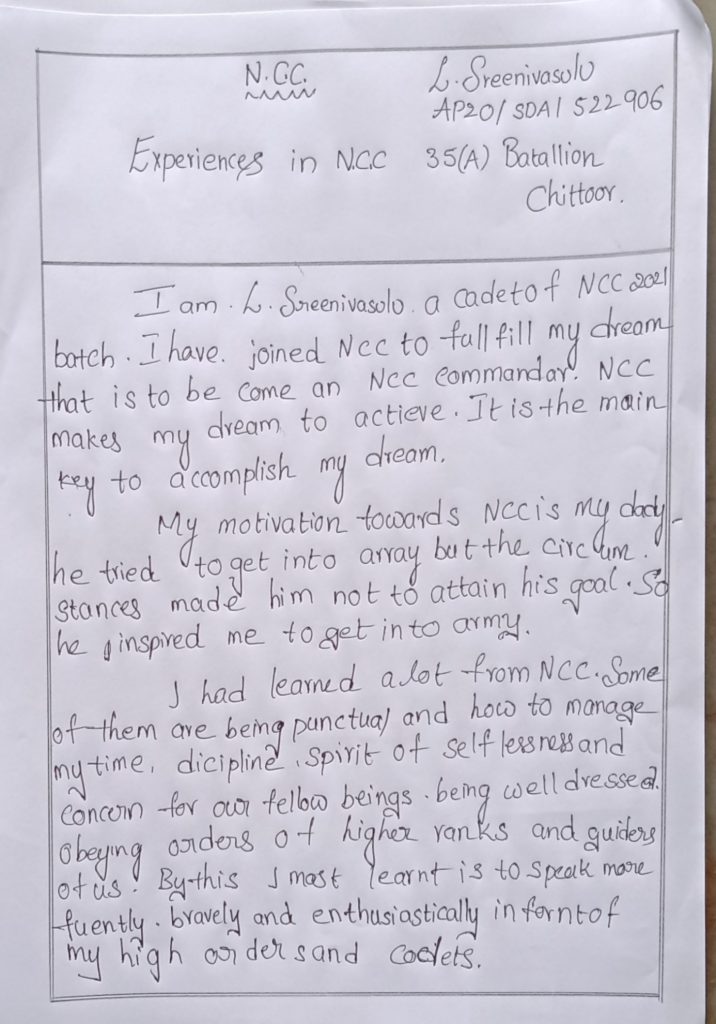 N.C.C. L. Sreenivasulu
AP20/SDA1 522906
Experiences in N.C.C 35(A) Batallion
Chittoor.
I am. L. Sreenivasolo. a cadet of NCC 2021
batch. I have. joined NCC to fullfill my dream
that is to be come an NCC commandar. NCC
makes my dream to actieve. It is the main
key to accomplish my dream.
My motivation towards NCC is my dady
he tried to get into array but the circum.
stances made him not to attain his goal. So
he inspired me to get in to army.
I had learned a lot from NCC. Some
of them are being punctual and how to manage
my time, dicipline, spirit of self lessness and
concorn for our fellow beings. being well dressed.
Obeying orders of higher ranks and guiders
of us. By this I most learnt is to speak more
fuently. bravely and enthusiastically in fornt of
my high orders and cadets.